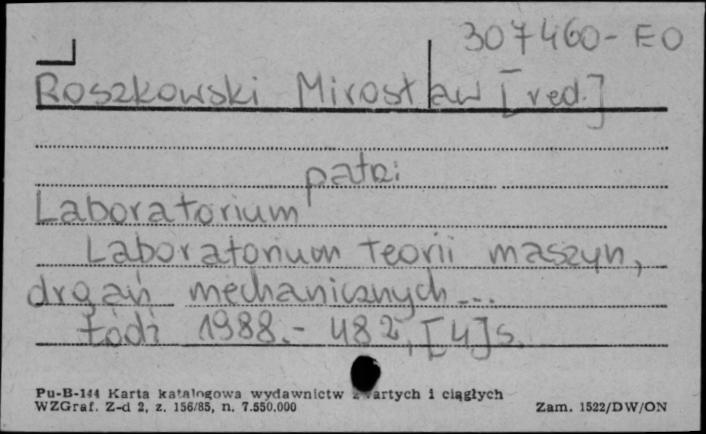 307460-EO
Roszkowski Mirosław [red.]
patrz:
Laboratorium
Laboratorium teorii maszyn,
drgań mechanicznych...
Łódź 1988.- 482, [4] s.
Pu-B-144 Karta katalogowa wydawnictw zwartych i ciągłych
WZGraf. Z-d 2, z. 156/85, n. 7.550.000
Zam. 1522/DW/ON